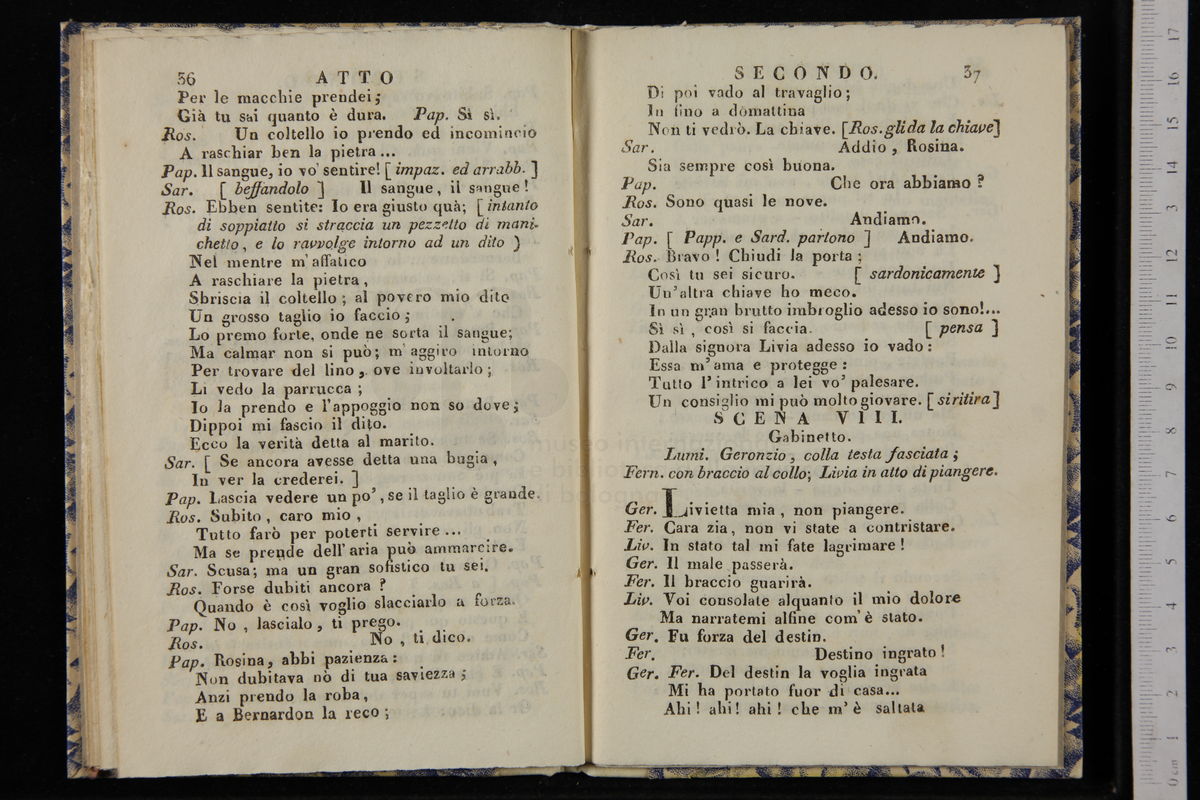 36 ATTO
Per le macchie prendei;
Già tu sai quanto è dura. Pap. Sì sì.
Ros. Un coltello io prendo ed incomincio
A raschiar ben la pietra...
Pap. Il sangue, io vo' sentire! [ impaz. ed arrabb. ]
Sar. [ beffandolo ] Il sangue, il sangue!
Ros. Ebben sentite: Io era giusto quà; [ intanto
di soppiatto si straccia un pezzetto di mani-
chetto, e lo ravvolge intorno ad un dito )
Nel mentre m'affatico
A raschiare la pietra,
Sbriscia il coltello; al povero mio dito
Un grosso taglio io faccio;
Lo premo forte, onde ne sorta il sangue;
Ma calmar non si può; m'aggiro intorno
Per trovare del lino, ove involtarlo;
Li vedo la parrucca;
Io la prendo e l'appoggio non so dove;
Dippoi mi fascio il dito.
Ecco la verità detta al marito.
Sar. [ Se ancora avesse detta una bugia,
In ver la crederei. ]
Pap. Lascia vedere un po', se il taglio è grande.
Ros. Subito, caro mio,
Tutto farò per poterti servire...
Ma se prende dell'aria può ammarcire.
Sar. Scusa; ma un gran sofistico tu sei.
Ros. Forse dubiti ancora?
Quando è così voglio slacciarlo a forza.
Pap. No, lascialo, ti prego.
Ros. No, ti dico.
Pap. Rosina, abbi pazienza:
Non dubitava nò di tua saviezza;
Anzi prendo la roba,
E a Bernardon la reco;
SECONDO. 37
Di poi vado al travaglio;
In fino a domattina
Non ti vedrò. La chiave. [Ros. gli da la chiave]
Sar. Addio, Rosina.
Sia sempre così buona.
Pap. Che ora abbiamo?
Ros. Sono quasi le nove.
Sar. Andiamo.
Pap. [ Papp. e Sard. partono ] Andiamo.
Ros. Bravo! Chiudi la porta;
Così tu sei sicuro. [ sardonicamente ]
Un'altra chiave ho meco.
In un gran brutto imbroglio adesso io sono!...
Sì sì, così si faccia. [ pensa ]
Dalla signora Livia adesso io vado:
Essa m'ama e protegge:
Tutto l'intrico a lei vo' palesare.
Un consiglio mi può molto giovare. [ si ritira ]
SCENA VIII.
Gabinetto.
Lumi. Geronzio, colla testa fasciata;
Fern. con braccio al collo; Livia in atto di piangere.
Ger. Livietta mia, non piangere.
Fer. Cara zia, non vi state a contristare.
Liv. In stato tal mi fate lagrimare!
Ger. Il male passerà.
Fer. Il braccio guarirà.
Liv. Voi consolate alquanto il mio dolore
Ma narratemi alfine com'è stato.
Ger. Fu forza del destin.
Fer. Destino ingrato!
Ger. Fer. Del destin la voglia ingrata
Mi ha portato fuor di casa...
Ahi! ahi! ahi! che m'è saltata